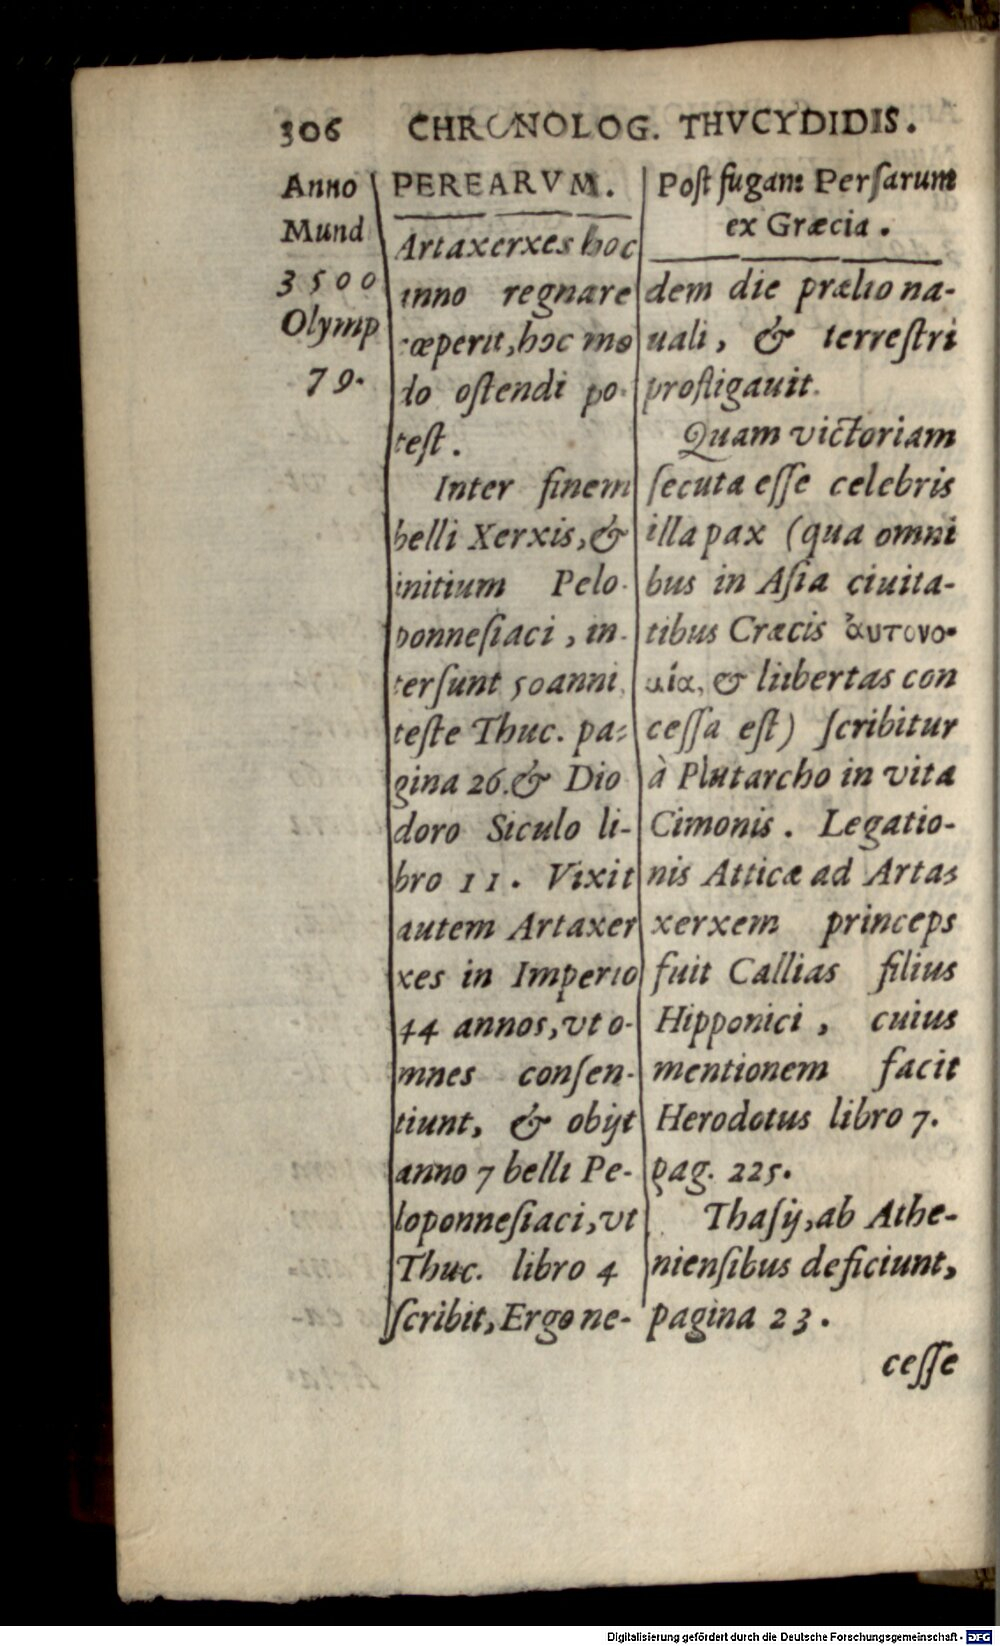 306 CHRONOLOG. THVCYDIDIS.
Anno
Mund
3500
Olymp
79.
PEREARVM.
Artaxerxes hoc
anno regnare
cœperit, hoc mo
do oſtendi po-
teſt.
Inter finem
belli Xerxis, &
initium Pelo-
ponneſiaci, in-
terſunt 50 anni,
teſte Thuc. pa-
gina 26. & Dio
doro Siculo li-
bro 11. Vixit
autem Artaxer
xes in Imperio
44 annos, vt o-
mnes conſen-
tiunt, & obijt
anno 7 belli Pe-
loponneſiaci, vt
Thuc. libro 4
ſcribit, Ergo ne-
Poſt fugam Perſarum
ex Græcia.
dem die prælio na-
uali, & terreſtri
profligauit.
Quam victoriam
ſecuta eſſe celebris
illa pax (qua omni
bus in Aſia ciuita-
tibus Cræcis ἀυτονο-
μία, & liibertas con
ceſſa eſt) ſcribitur
à Plutarcho in vita
Cimonis. Legatio-
nis Atticæ ad Arta-
xerxem princeps
fuit Callias filius
Hipponici, cuius
mentionem facit
Herodotus libro 7.
pag. 225.
Thaſij, ab Athe-
nienſibus deficiunt,
pagina 23.
ceſſe
Digitalisierung gefördert durch die Deutsche Forschungsgemeinschaft - DFG